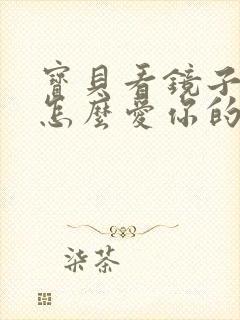 寶貝看鏡子
怎麼愛你的
柒茶